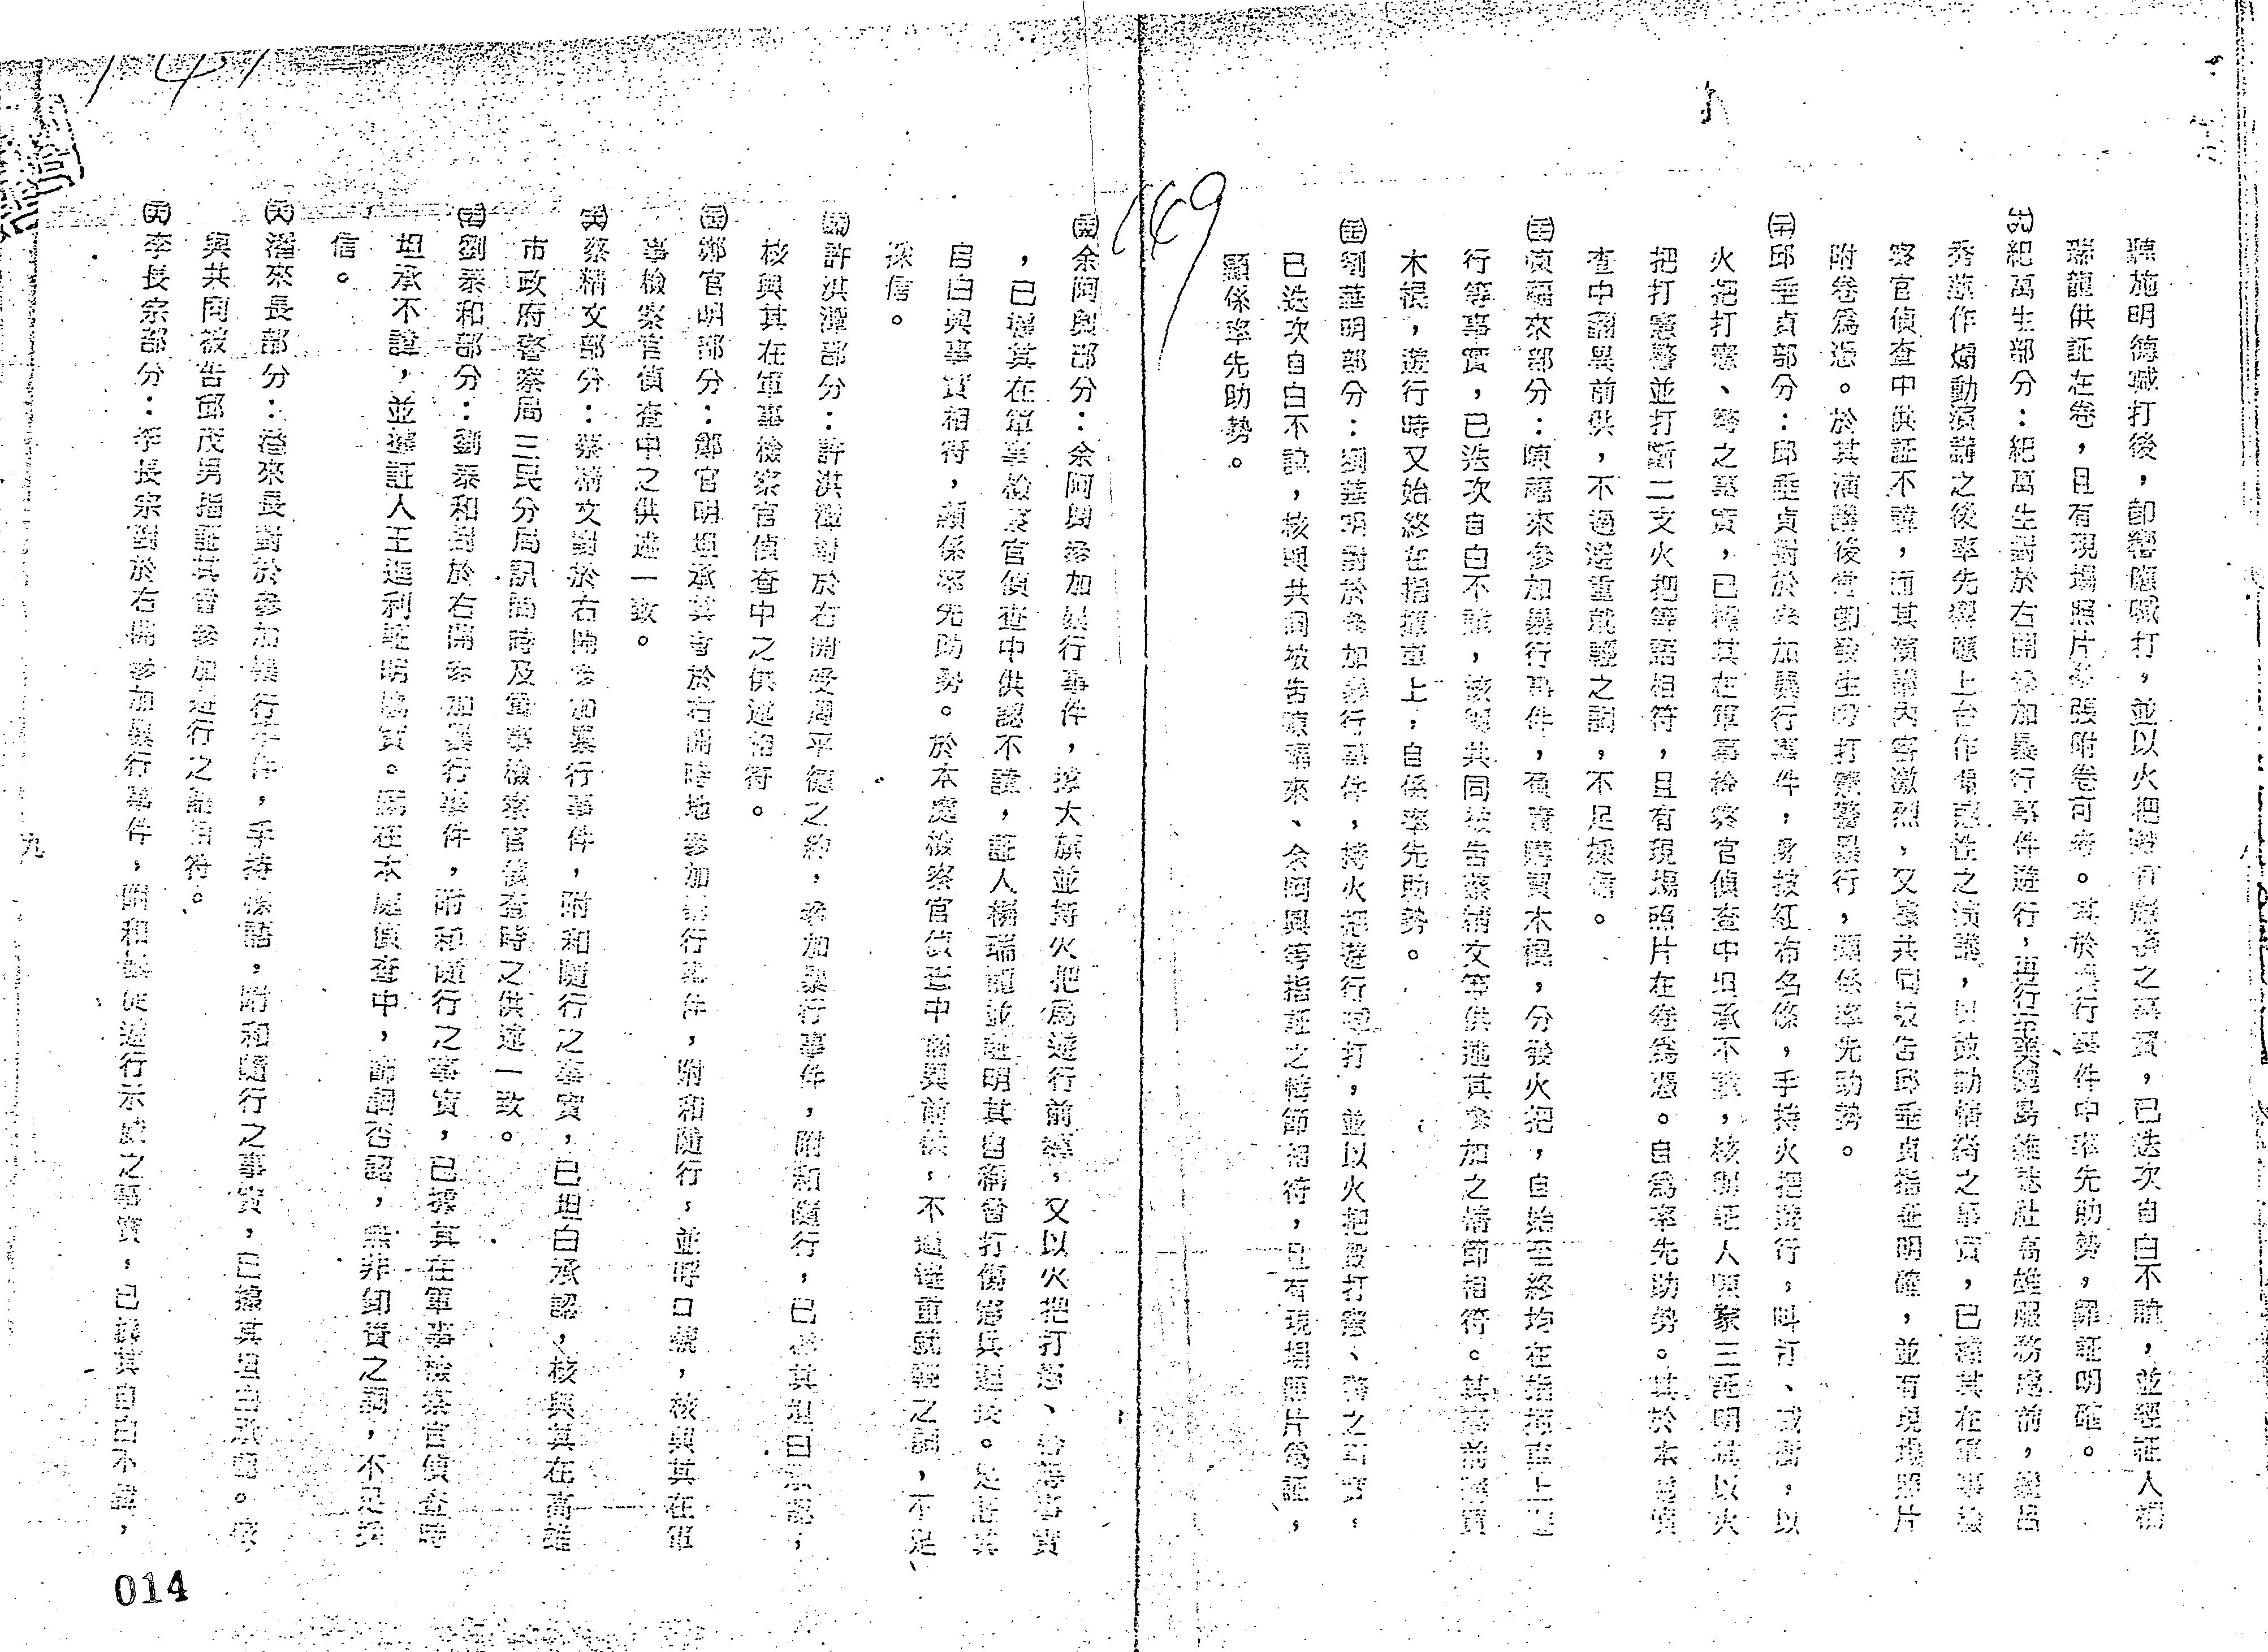 聽施明德喊打後，即響應喊打，並以火把毆打憲警之事實，已迭次自白不諱，並經証人楊
瑞龍供証在卷，且有現場照片多張附卷可考。其於暴行事件中率先助勢，罪証明確。
紀萬生部分：紀萬生對於右開參加暴行事件遊行，再行至美麗島雜誌社高雄服務處前，繼呂
秀蓮作煽動演講之後率先響應上台作煽惑性之演講，以鼓動情緒之事實，已據其在軍事檢
察官偵查中供証不諱，而其演講內容激烈，又據共同被告邱垂貞指証明確，並有現場照片
附卷為憑。於其演講後當即發生毆打憲警暴行，顯係率先助勢。
邱垂貞部分：邱垂貞對於參加暴行事件，身披紅布名條，手持火把遊行，叫打、喊衝，以
火把打憲、警之事實，已據其在軍事檢察官偵查中坦承不諱，核與証人顏家三証明其以火
把打憲警並打斷二支火把等語相符，且有現場照片在卷為憑。自為率先助勢。其於本處偵
查中翻異前供，不過避重就輕之詞，不足採信。
陳福來部分：陳福來參加暴行事件，負責購買木棍，分發火把，自始至終均在指揮車上遊
行等事實，已迭次自白不諱，核與共同被告蔡精文等供述其參加之情節相符。其事前購買
木棍，遊行時又始終在指揮車上，自係率先助勢。
劉華明部分：劉華明對於參加暴行事件，持火把遊行喊打，並以火把毆打憲、警之事實，
已迭次自白不諱，核與共同被告陳福來、余阿興等指証之情節相符，且有現場照片為証，
顯係率先助勢。
149
余阿興部分：余阿興參加暴行事件，撐大旗並持火把為遊行前導，又以火把打憲、警等事實
，已據其在軍事檢察官偵查中供認不諱，証人楊瑞龍並証明其自稱曾打傷憲兵連長。足証其
自白與事實相符，顯係率先助勢。於本處檢察官偵查中翻異前供，不過避重就輕之詞，不足
採信。
許洪潭部分：許洪潭對於右開受周平德之約，參加暴行事件，附和隨行，已據其坦白承認，
核與其在軍事檢察官偵查中之供述相符。
鄭官明部分：鄭官明坦承其曾於右開時地參加暴行事件，附和隨行，並呼口號，核與其在軍
事檢察官偵查中之供述一致。
蔡精文部分：蔡精文對於右開參加暴行事件，附和隨行之事實，已坦白承認，核與其在高雄
市政府警察局三民分局訊問時及軍事檢察官偵查時之供述一致。
劉泰和部分：劉泰和對於右開參加暴行事件，附和隨行之事實，已據其在軍事檢察官偵查時
坦承不諱，並據証人王進利証明屬實。雖在本處偵查中，飾詞否認，無非卸責之詞，不足採
信。
潘來長部分：潘來長對於參加暴行事件，手持標語，附和隨行之事實，已據其坦白承認。核
與共同被告邱茂男指証其曾參加遊行之詞相符。
李長宗部分：李長宗對於右開參加暴行事件，附和隨從遊行示威之事實，已據其自白不諱，
九
014